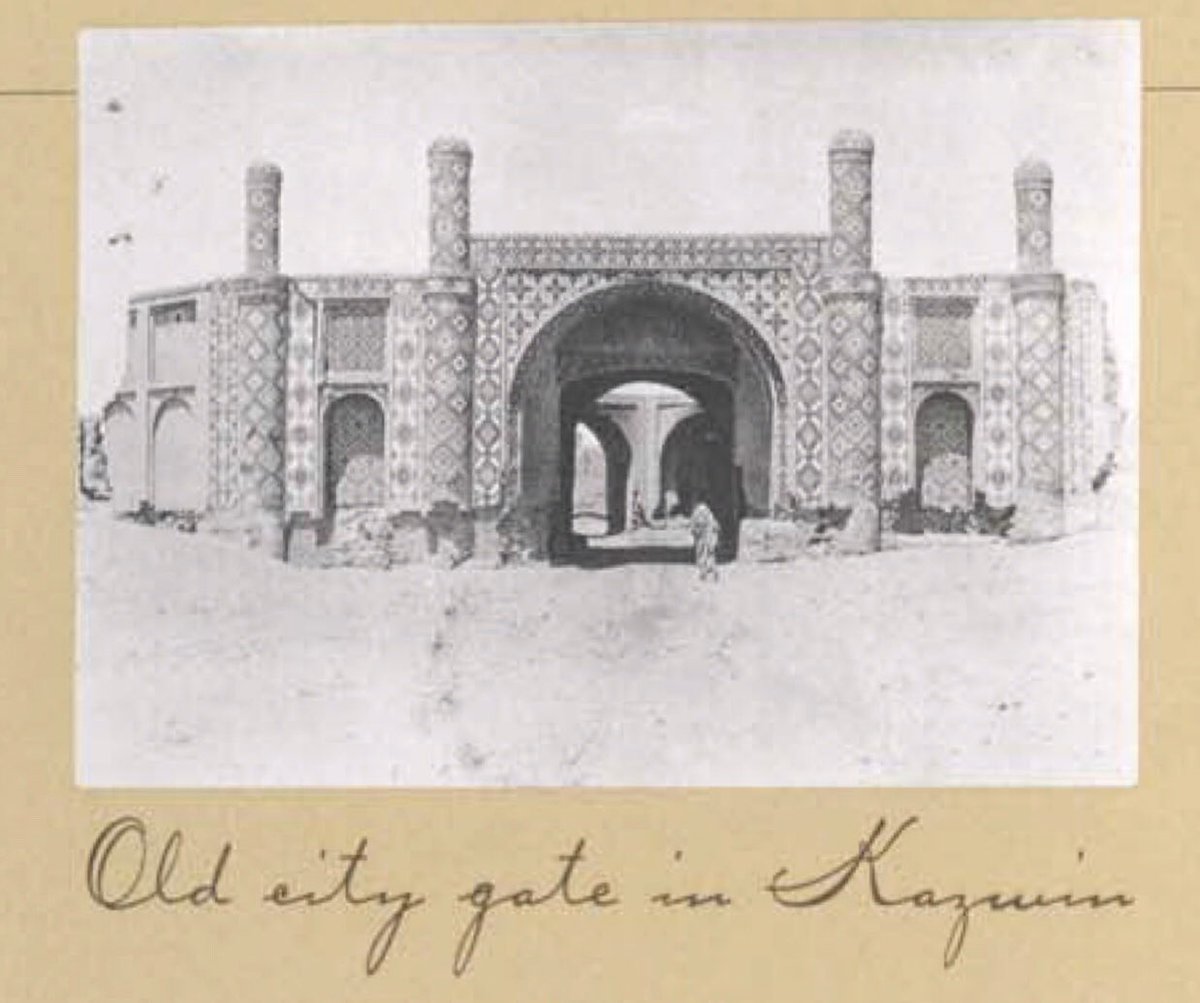 Old city gate in Kazwin